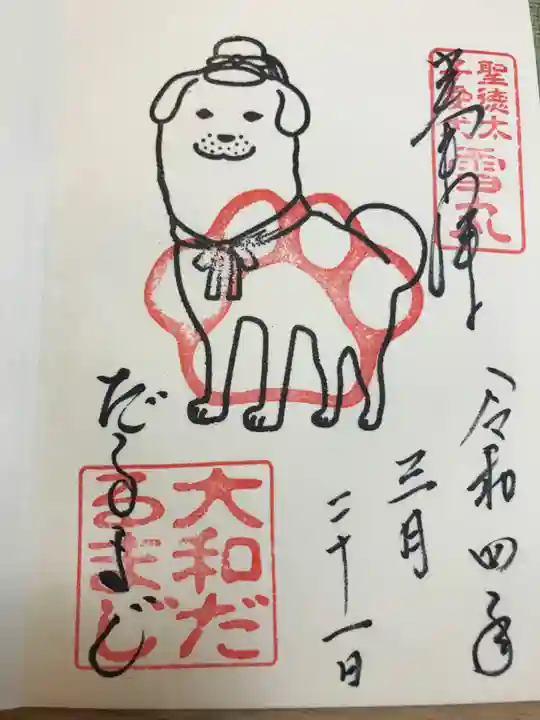 聖徳太
雪丸
令和四年
三月
二十一日
だるまじ
大和だ
るまじ